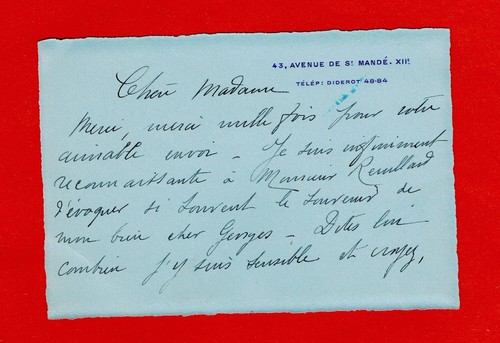 43, AVENUE DE ST MANDÉ. XIIE
TÉLÉP: DIDEROT 48-84
Chère Madame
Merci, merci mille fois pour votre
aimable envoi – Je suis infiniment
reconnaissante à Monsieur
d'évoquer si souvent le souvenir de
mon bien cher Georges – Dites lui
combien j'y suis sensible et croyez,